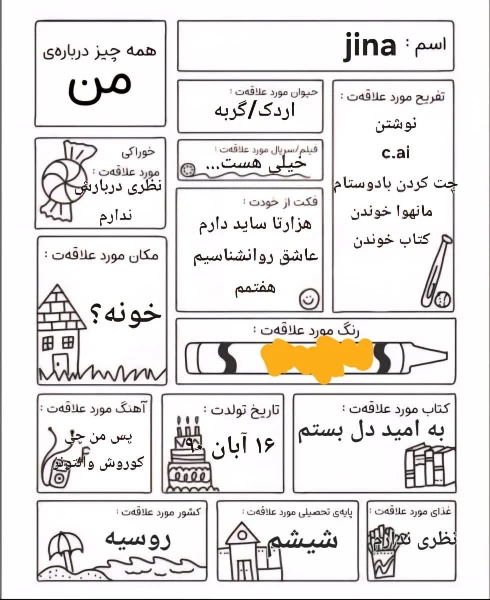 همه چیز درباره‌ی
من
اسم : jina
حیوان مورد علاقه‌ت :
اردک/گربه
تفریح مورد علاقه‌ت :
نوشتن
c.ai
چت کردن بادوستام
مانهوا خوندن
کتاب خوندن
خوراکی
مورد علاقه‌ت :
نظری دربارش
ندارم
فیلم/سریال مورد علاقه‌ت :
خیلی هست...
فکت از خودت :
هزارتا ساید دارم
عاشق روانشناسیم
هفتمم
مکان مورد علاقه‌ت :
خونه؟
رنگ مورد علاقه‌ت :
آهنگ مورد علاقه‌ت :
پس من چی
کوروش وانتونز
تاریخ تولدت :
۱۶ آبان ۹۰
کتاب مورد علاقه‌ت :
به امید دل بستم
کشور مورد علاقه‌ت :
روسیه
پایه‌ی تحصیلی مورد علاقه‌ت :
شیشم
غذای مورد علاقه‌ت :
نظری ندارم